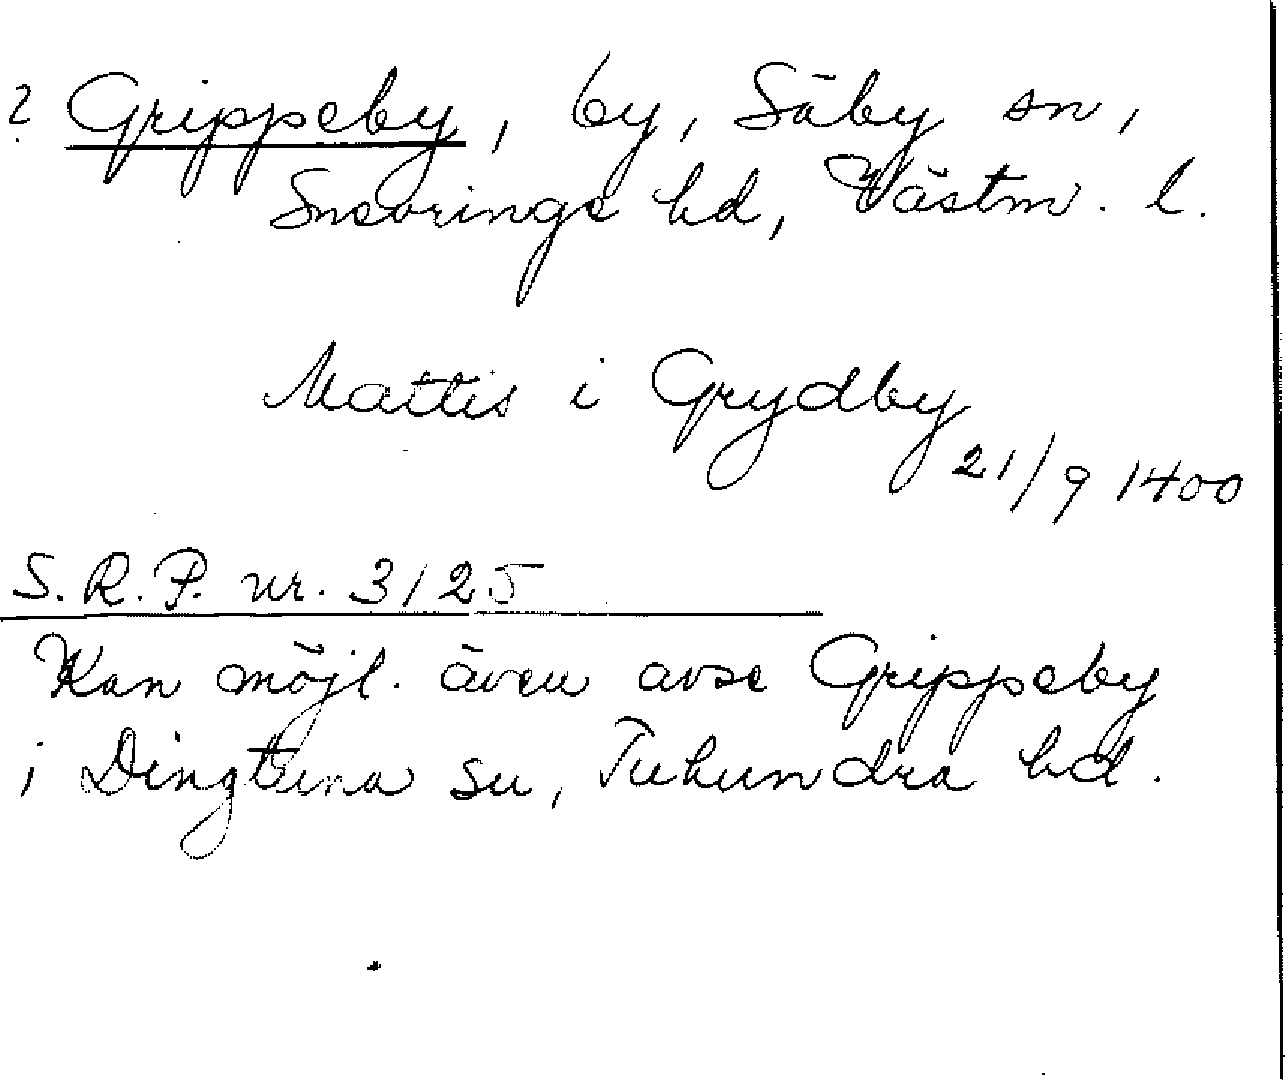 ? Grippeby, by, Säby sn,
Snevringe hd, Västm. l.
Mattis i Grydby
21/9 1400
S.R.P. nr. 3125
Kan möjl. även avse Grippeby
i Dingtuna sn, Tuhundra hd.